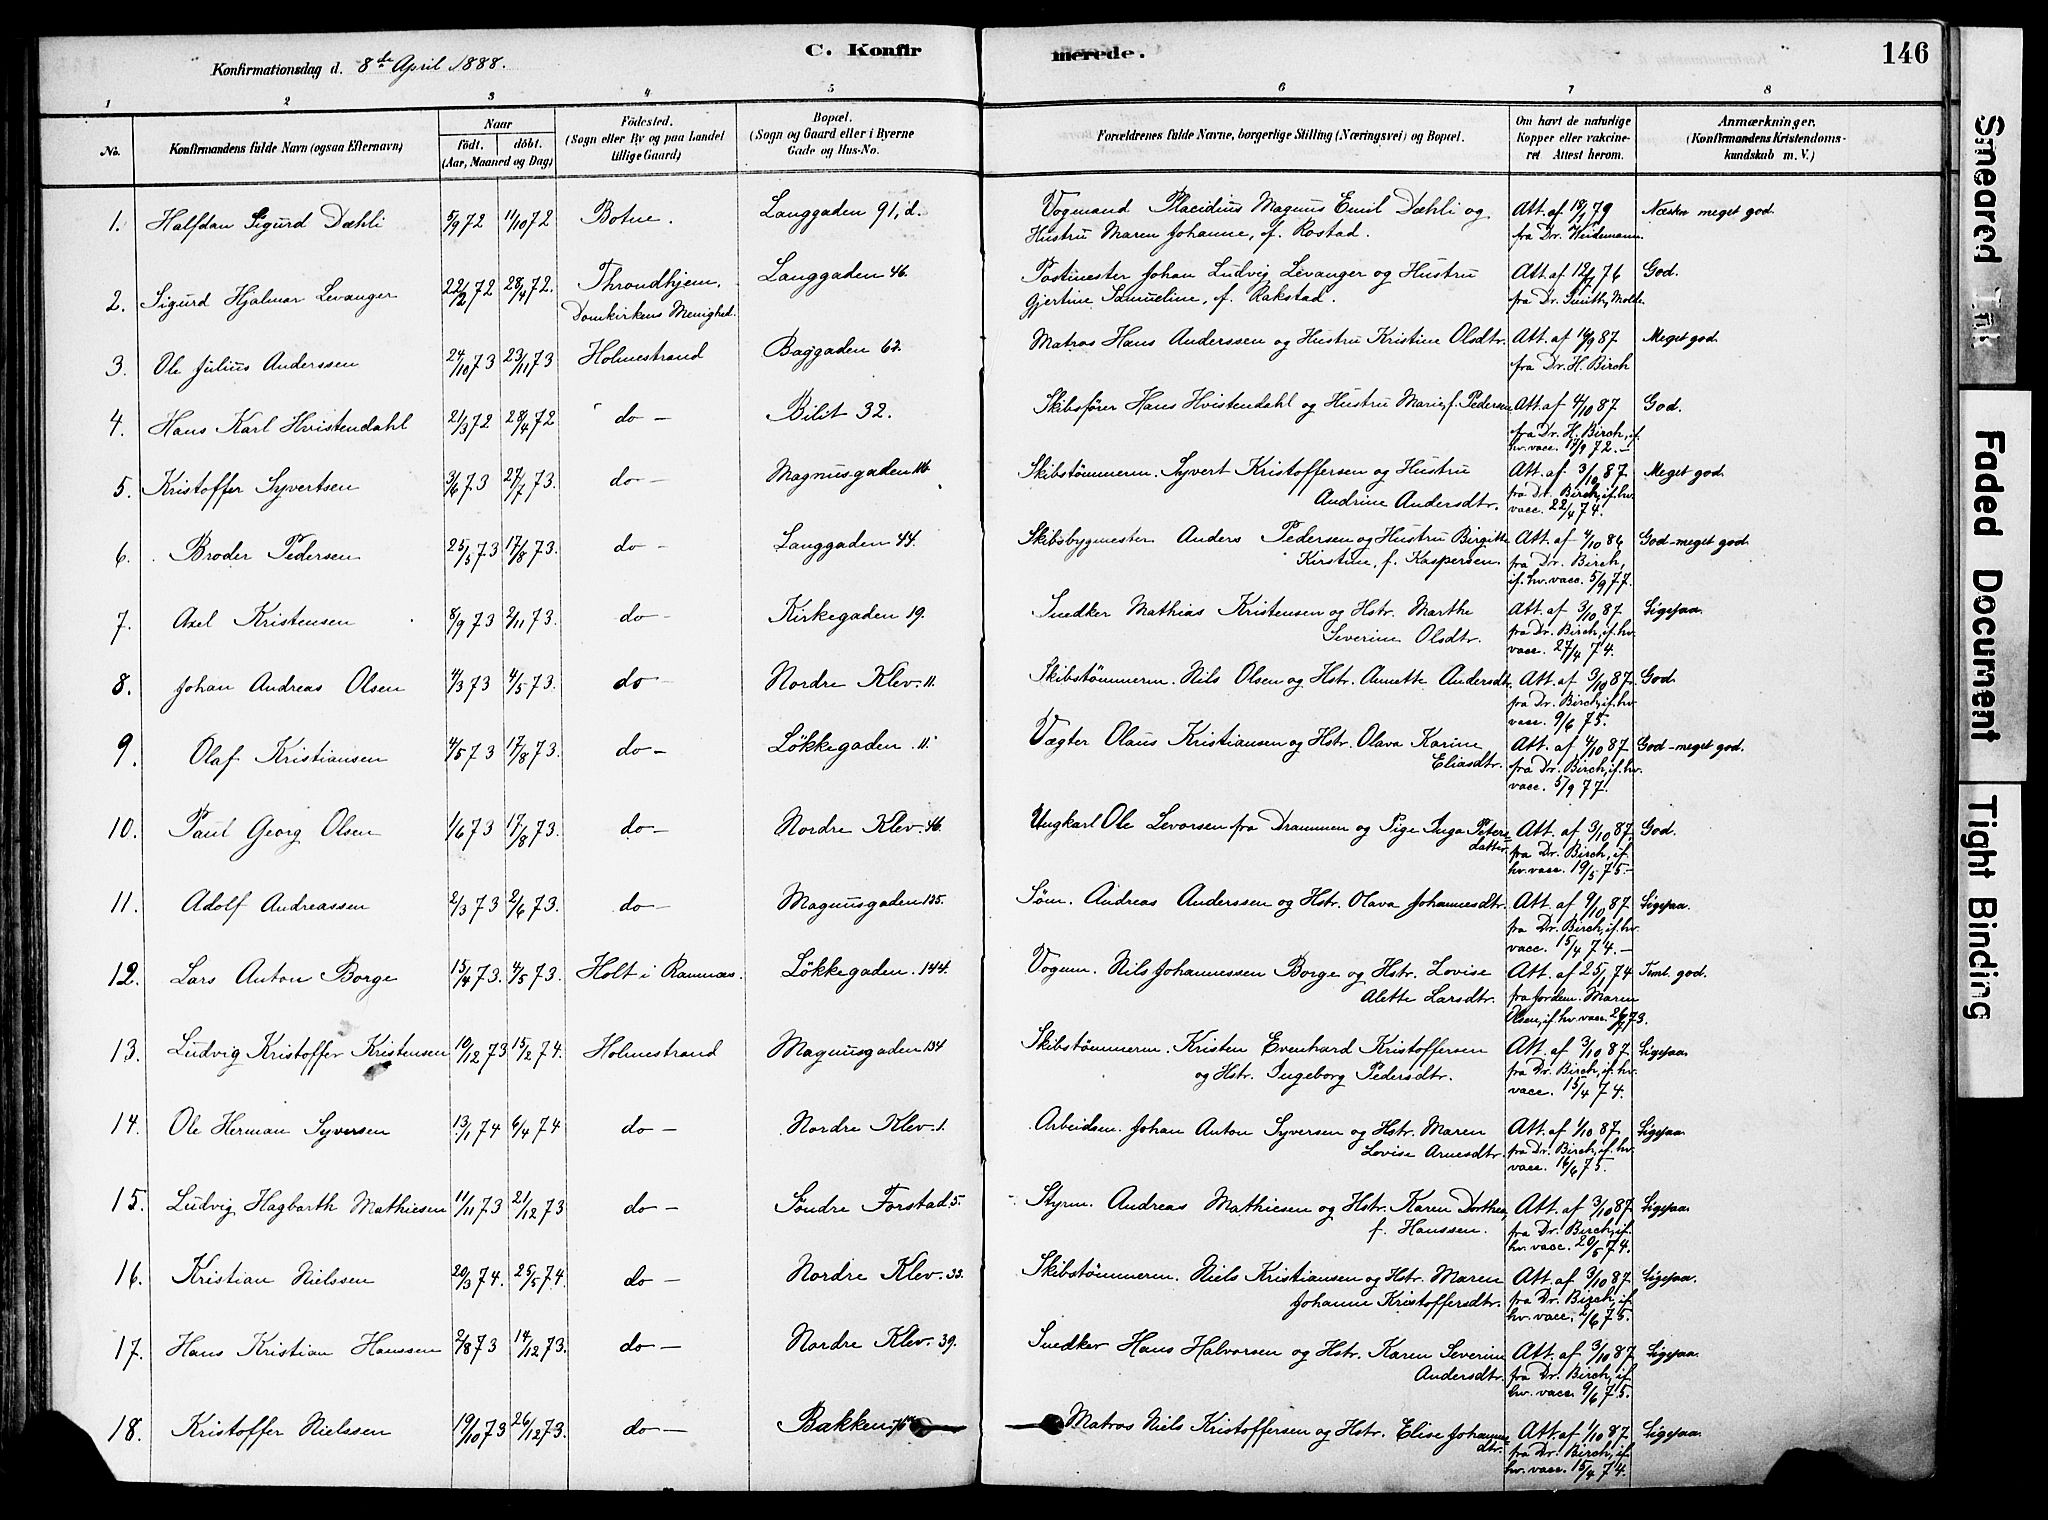 C. Konfirmerede.
146
Konfirmationsdag d. 8de April 1888.
1 2 3 4 5 6 7 8
No.
Konfirmandens fulde Navn (ogsaa Efternavn)
Naar
födt. döbt.
(Aar, Maaned og Dag)
Födested.
(Sogn eller By og paa Landet
tillige Gaard)
Bopæl.
(Sogn og Gaard eller i Byerne
Gade og Hus-No.
Forældrenes fulde Navne, borgerlige Stilling (Næringsvei) og Bopæl.
Om havt de naturlige
Kopper eller vakcine-
ret Attest herom.
Anmærkninger.
(Konfirmandens Kristendoms-
kundskab m. V.)
1. Halfdan Sigurd Dæhli 5/9 72 11/10 72 Botne. Langgaden 91, d. Vognmand Placidius Magnus Emil Dæhli og Att. af 79 Næsten meget god.
Hustru Maren Johanne, f. Rostad. fra Dr. Heidemann.
2. Sigurd Hjalmar Levanger 22/2 72 28/4 72. Throndhjem, Langgaden 46. Postmester Johan Ludvig Levanger og Hustru Att. af 76 God.
Domkirkens Menighed. Gjertine Samueline, f. Rakstad. fra Dr. Smith, Molde.
3. Ole Julius Anderssen 24/10 73 23/11 73 Holmestrand Baggaden 62. Matros Hans Anderssen og Hustru Kristine Olsdtr. Att. af 87 Meget god.
fra Dr. H. Birch
4. Hans Karl Hvistendahl 21/3 72 28/4 72 do - Bilit 32. Skibsfører Hans Hvistendahl og Hustru Marie, f. Pedersen Att. af 4/10 87 God.
fra Dr. H. Birch, if.
hv. vacc. 72. -
5. Kristoffer Syvertsen 3/6 73 27/7 73. do - Magnusgaden 116. Skibstömmerm. Syvert Kristoffersen og Hustru Att. af 3/10 87. Meget god.
Andrine Andersdtr. fra Dr. Birch, if. hv.
vacc. 22/4 74.
6. Broder Pedersen 25/5 73 17/8 73. do - Langgaden 44. Skibsbygmester Anders Pedersen og Hustru Birgitte Att. af 4/10 86 God-meget god.
Kirstine, f. Kaspersen. fra Dr. Birch,
if. hv. vacc. 5/9 77.
7. Axel Kristensen 8/9 73 2/11 73. do - Kirkegaden 19. Snedker Mathias Kristensen og Hstr. Marthe Att. af 3/10 87. Ligesaa.
Severine Olsdtr. fra Dr. Birch, if. hv.
vacc. 27/4 74.
8. Johan Andreas Olsen 4/3 73 4/5 73. do - Nordre Klev. 11. Skibstömmerm. Nils Olsen og Hstr. Annette Andersdt. Att. af 3/10 87. God.
fra Dr. Birch, if. hv.
vacc. 9/6 75.
9. Olaf Kristiansen 4/5 73 17/8 73. do - Løkkegaden. 11. Vægter Olaus Kristiansen og Hstr. Olava Karine Att. af 4/10 87. God-meget god.
Eliasdtr. fra Dr. Birch, if. hv.
vacc. 5/9 77.
10. Paul Georg Olsen 1/6 73 17/8 73. do - Nordre Klev. 46. Ungkarl Ole Levorsen fra Drammen og Pige Inga Peters- Att. af 3/10 87. God.
datter fra Dr. Birch, if.
hv. vacc. 19/5 75. -
11. Adolf Andreassen 2/3 73 2/6 73. do - Magnusgaden 135. Søm. Andreas Anderssen og Hstr. Olava Johannesdtr. Att. af 9/10 87. Ligesaa.
fra Dr. Birch, if. hv.
vacc. 15/4 74. -
12. Lars Anton Borge 15/4 73. 4/5 73. Holt i Ramnæs. Løkkegaden. 144. Vognm. Nils Johannessen Borge og Hstr. Lovise Att. af 25/1 74 Teml. god.
Alette Larsdtr. fra Jordem. Maren
Olsen, if. hv. vacc. 73.
13. Ludvig Kristoffer Kristensen 19/12 73 15/2 74. Holmestrand Magnusgaden 134 Skibstömmerm. Kristen Evenhard Kristoffersen Att. af 3/10 87. Ligesaa.
og Hstr. Ingeborg Pedersdtr. fra Dr. Birch, if. hv.
vacc. 15/4 74.
14. Ole Herman Syversen 13/1 74 6/4 74 do - Nordre Klev. 1. Arbeidsm. Johan Anton Syversen og Hstr. Maren Att. af 1/10 87. Ligesaa.
Lovise Arnesdtr. fra Dr. Birch, if. hv.
vacc. 16/6 75.
15. Ludvig Hagbarth Mathiesen 11/11 73 21/12 73 do - Söndre Forstad 5. Styrm. Andreas Mathiesen og Hstr. Karen Dorthea, Att. af 3/10 87. Ligesaa.
f. Hanssen. fra Dr. Birch, if.
hv. vacc. 20/5 74.
16. Kristian Nielssen 20/3 74. 25/5 74. do - Nordre Klev. 33. Skibstömmerm. Niels Kristiansen og Hstr. Maren Att. af 3/10 87. Ligesaa.
Johanne Kristoffersdtr. fra Dr. Birch, if.
hv. vacc. 2/6 75.
17. Hans Kristian Hanssen 2/8 73 14/12 73. do - Nordre Klev. 39. Snedker Hans Halvorsen og Hstr. Karen Severine Att. af 3/10 87. Ligesaa.
Andersdtr. fra Dr. Birch, if.
hv. vacc. 9/6 75.
18. Kristoffer Nielssen 19/10 73 26/12 73. do - Bakken Matros Niels Kristoffersen og Hstr. Elise Johannes- Att. af 1/10 87. Ligesaa.
dtr. fra Dr. Birch, if.
hv. vacc. 15/4 74.
Smeared Ink
Faded Document
Tight Binding